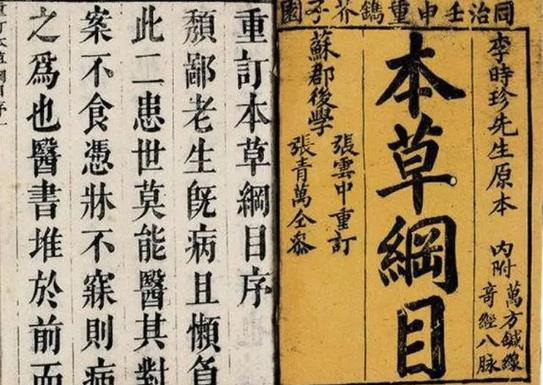 同治壬申重鐫芥子園
李時珍先生原本
內附
萬方鍼線
奇經八脉
本草綱目
蘇郡後學
張雲中重訂
張青萬仝參
重訂本草綱目序
頽鄙老生旣病且懶負
此二患世莫能醫其對
案不食憑牀不寐則病
之爲也醫書堆於前而